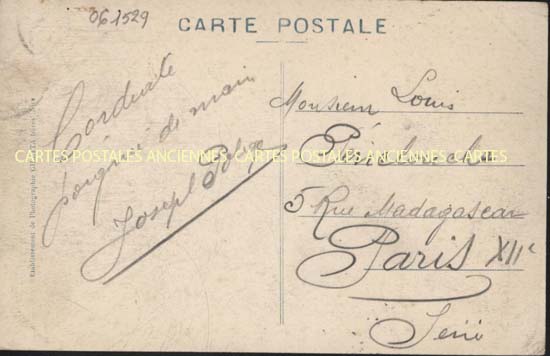 061529
CARTE POSTALE
Cordiale
poignée de main
Joseph
Monsieur Louis
5 Rue Madagascar
Paris XIIe
CARTES POSTALES ANCIENNES, CARTES POSTALES ANCIENNES, CARTES
Etablissement de Photographie